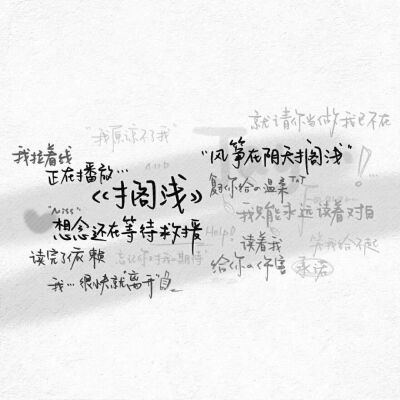 就请你当做我已不在
"我原谅不了我
我拉着线
正在播放…
《搁浅》
"风筝在阴天搁浅"
"想念还在等待救援
我只能永远读着对白
Help!
读着我
给你的伤害
承诺
笑我给不起
读完了依赖
忘记你对我的期待
我…很快就"离开"